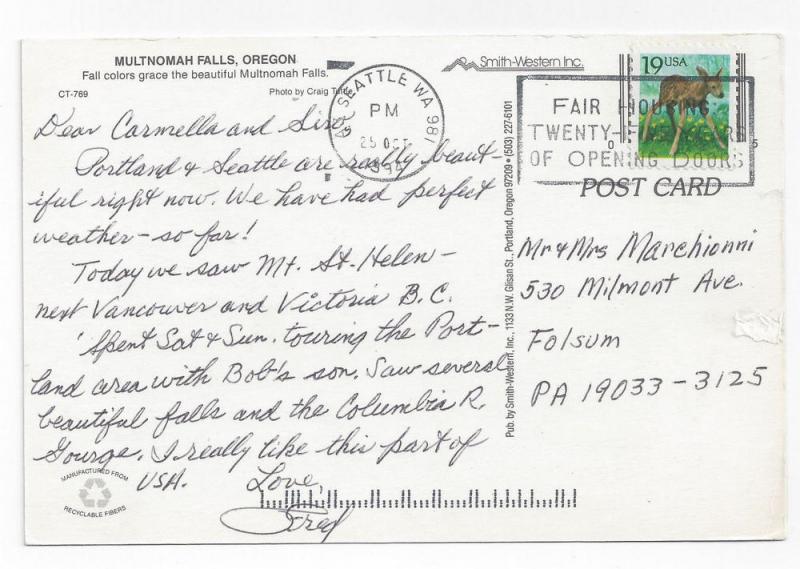 MULTNOMAH FALLS, OREGON
Fall colors grace the beautiful Multnomah Falls.
CT-769
Photo by Craig Tuttle
Smith-Western Inc.
19 USA
SEATTLE WA 981
PM
25 OCT
FAIR HOUSING
TWENTY-FIVE YEARS
OF OPENING DOORS
POST CARD
Dear Carmella and Siro,
Portland & Seattle are really beaut-
iful right now. We have had perfect
weather - so far!
Today we saw Mt. St. Helen -
next Vancouver and Victoria B.C.
Spent Sat & Sun. touring the Port-
land area with Bob's son. Saw several
beautiful falls and the Columbia R.
Gourge. I really like this part of
USA. Love,
Pub. by Smith-Western, Inc., 1133 N.W. Glisan St., Portland, Oregon 97209 • (503) 227-6101
Mr & Mrs Marchionni
530 Milmont Ave.
Folsum
PA 19033-3125
MANUFACTURED FROM
RECYCLABLE FIBERS